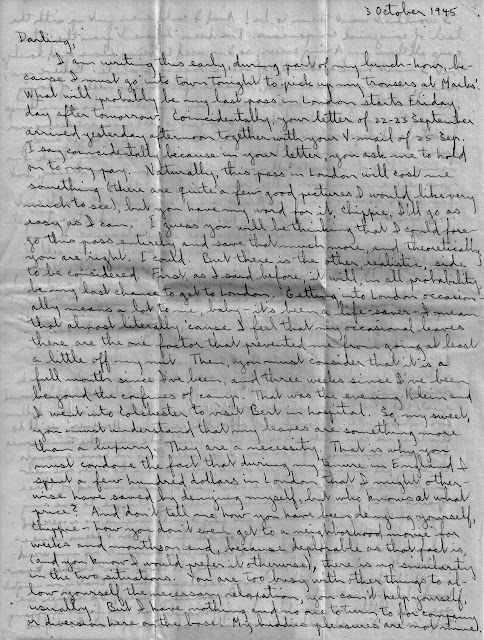 3 October 1945
Darling,
I am writing this early, during part of my lunch-hour, be-
cause I must go into town tonight to pick up my trousers at Marks'.
What will probably be my last pass in London starts Friday,
day after tomorrow. Coincidentally, your letter of 22-23 September
arrived yesterday afternoon together with your V-mail of 25 Sep.
I say coincidentally because in your letter, you ask me to hold
on to my pay. Naturally, this pass in London will cost me
something (there are quite a few good pictures I would like very
much to see), but you have my word for it, Chippie, I'll go as
easy as I can. I guess you will be thinking that I could fore-
go this pass entirely and save that much more, and theoretically
you are right. I could. But there is the other, realistic, side
to be considered. First, as I said before, it will in all probability
be my last chance to get to London. Getting into London occasion-
ally means a lot to me, baby - it's been a life-saver. I mean
that almost literally, 'cause I feel that my occasional leaves
there are the one factor that prevented me from going at least
a little off my nut. Then, you must consider that it is a
full month since I've been, and three weeks since I've been
beyond the confines of camp. That was the evening Klein and
I went into Colchester to visit Bert in hospital. So, my sweet,
you must understand that my leaves are something more
than a luxury. They are a necessity. That is why you
must condone the fact that during my tenure in England I
spent a few hundred dollars in London that I might other-
wise have saved by denying myself, but who knows at what
price? And don't tell me how you have been denying yourself,
chippie - how you don't even get to a neighborhood movie for
weeks and months on end, because deplorable as that fact is,
(and you know I would prefer it otherwise), there is no similarity
in the two situations. You are too busy with other things to al-
low yourself the necessary relaxation, you can't help yourself,
usually. But I have nothing and no one to turn to for company
or diversion here on the base. My buddies' pleasures are not mine,